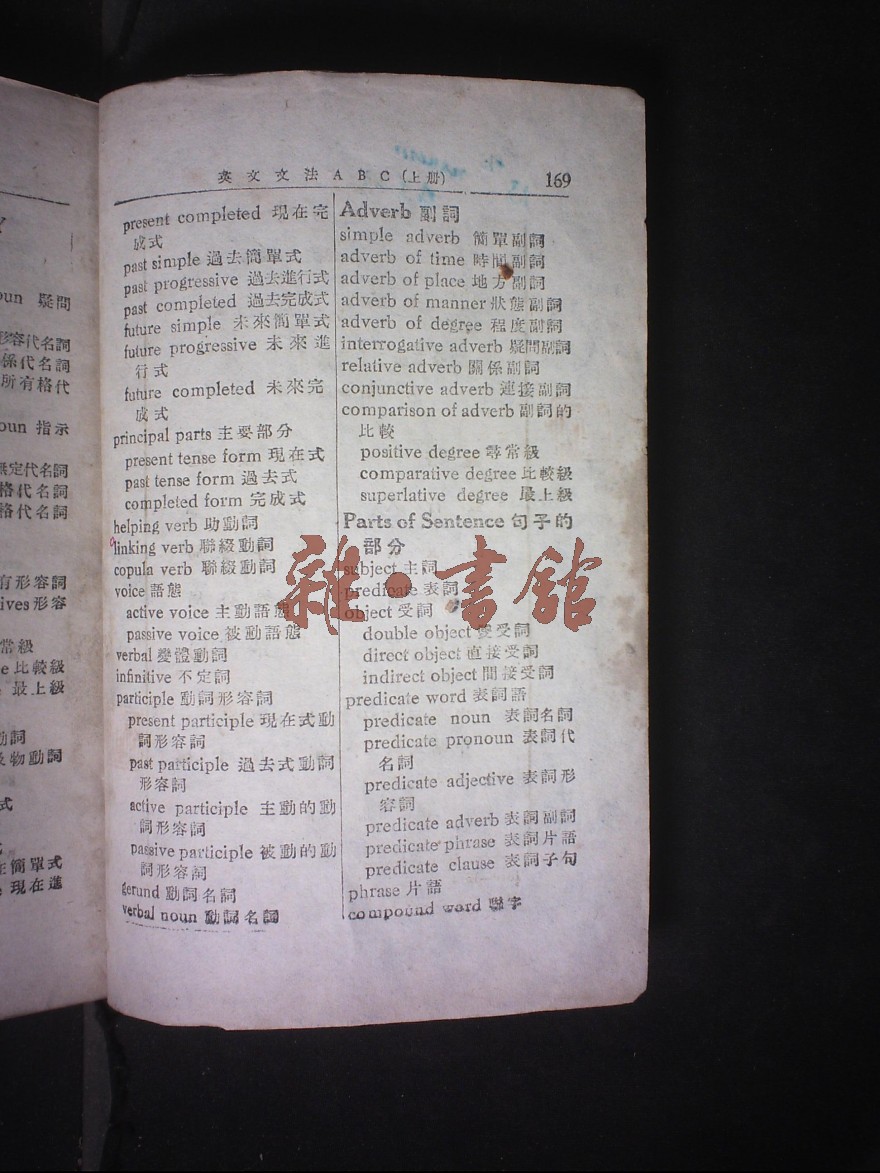 英文文法ABC(上册) 169
present completed 現在完
成式
past simple 過去簡單式
past progressive 過去進行式
past completed 過去完成式
future simple 未來簡單式
future progressive 未來進
行式
future completed 未來完
成式
principal parts 主要部分
present tense form 現在式
past tense form 過去式
completed form 完成式
helping verb 助動詞
linking verb 聯綴動詞
copula verb 聯綴動詞
voice 語態
active voice 主動語態
passive voice 被動語態
verbal 變體動詞
infinitive 不定詞
participle 動詞形容詞
present participle 現在式動
詞形容詞
past participle 過去式動詞
形容詞
active participle 主動的動
詞形容詞
passive participle 被動的動
詞形容詞
gerund 動詞名詞
verbal noun 動詞名詞
Adverb 副詞
simple adverb 簡單副詞
adverb of time 時間副詞
adverb of place 地方副詞
adverb of manner 狀態副詞
adverb of degree 程度副詞
interrogative adverb 疑問副詞
relative adverb 關係副詞
conjunctive adverb 連接副詞
comparison of adverb 副詞的
比較
positive degree 尋常級
comparative degree 比較級
superlative degree 最上級
Parts of Sentence 句子的
部分
subject 主詞
predicate 表詞
object 受詞
double object 雙受詞
direct object 直接受詞
indirect object 間接受詞
predicate word 表詞語
predicate noun 表詞名詞
predicate pronoun 表詞代
名詞
predicate adjective 表詞形
容詞
predicate adverb 表詞副詞
predicate phrase 表詞片語
predicate clause 表詞子句
phrase 片語
compound word 聯字
雜·書館
oun 疑問
形容代名詞
係代名詞
所有格代
oun 指示
無定代名詞
格代名詞
格代名詞
有形容詞
ives 形容
常級
e 比較級
最上級
動詞
及物動詞
式
簡單式
現在進